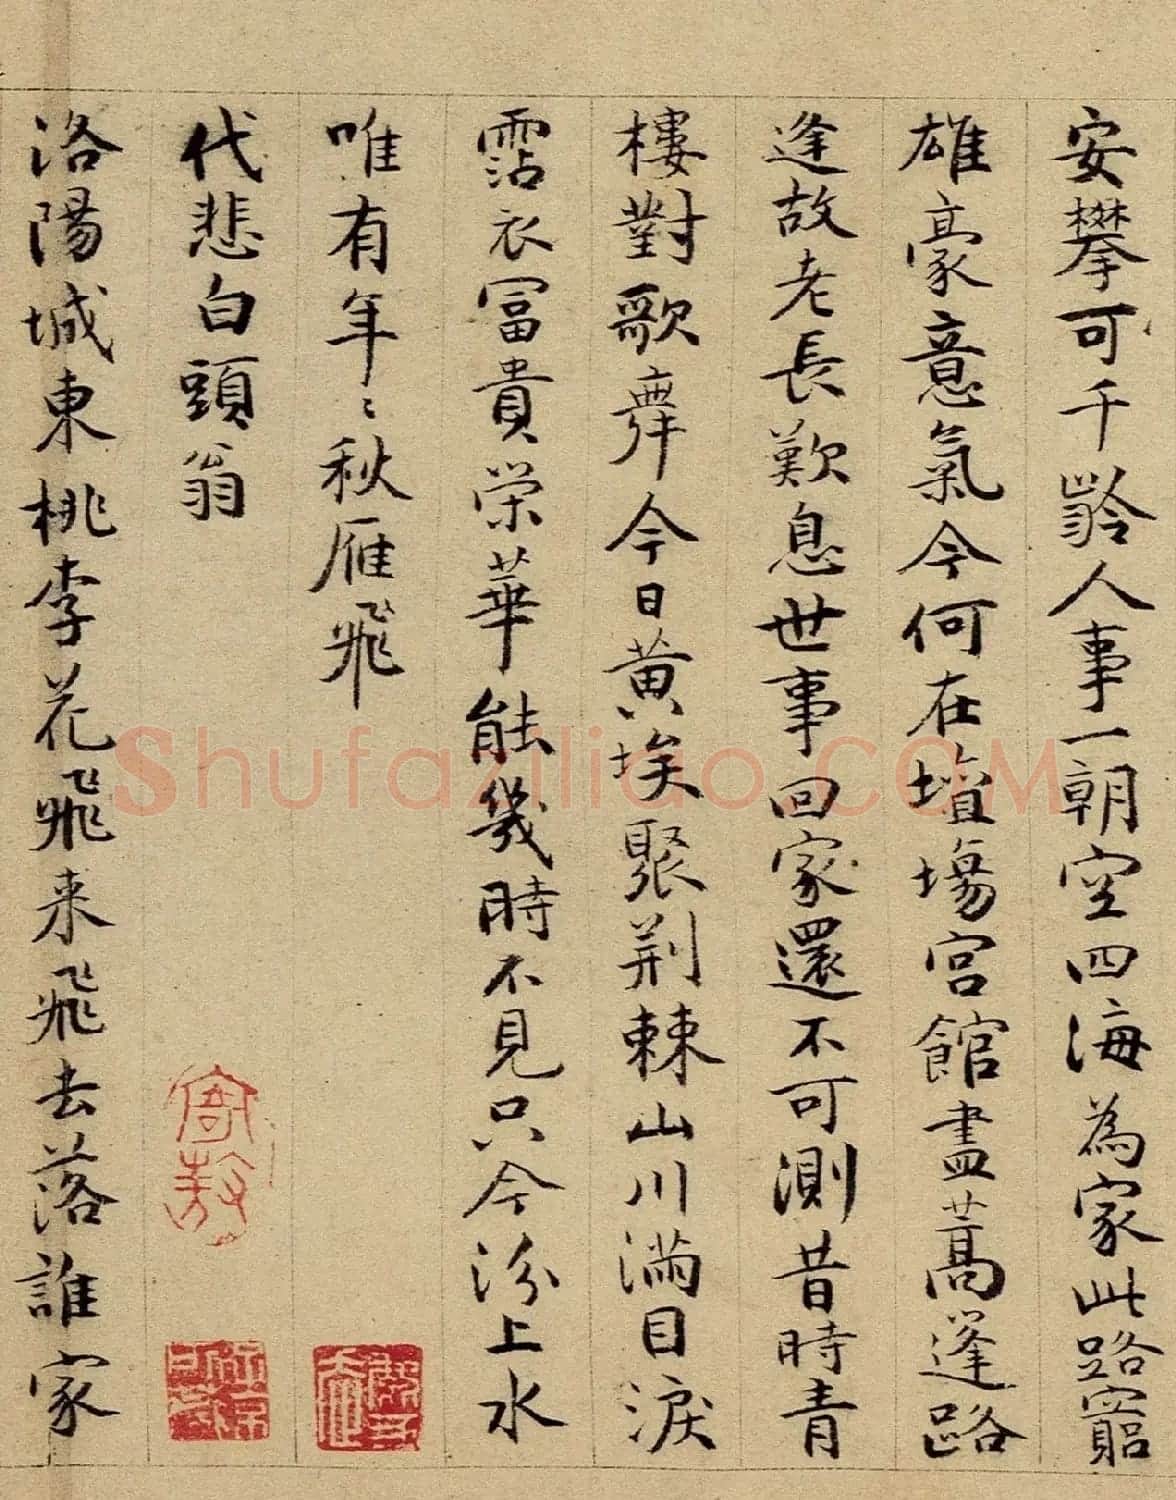 安攀可千齡人事一朝空四海為家此路窮
雄豪意氣今何在壇場宮館盡蒿蓬路
逢故老長歎息世事回家還不可測昔時青
樓對歌舞今日黃埃聚荆棘山川滿目淚
霑衣富貴榮華能幾時不見只今汾上水
唯有年〻秋雁飛
代悲白頭翁
洛陽城東桃李花飛来飛去落誰家
Shufaziliao.COM